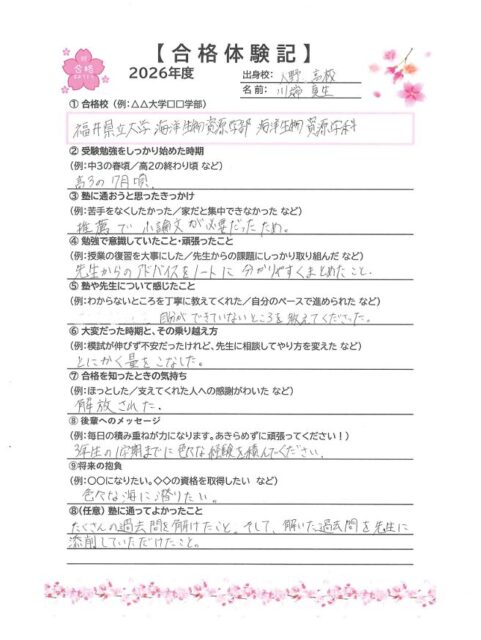 祝
合格
【合格体験記】
2026年度
出身校: 人野 高校
名前: 川端 真生
① 合格校（例：△△大学□□学部）
福井県立大学 海洋生物資源学部 海洋生物資源学科
② 受験勉強をしっかり始めた時期
（例：中3の春頃／高2の終わり頃 など）
高3の7月頃。
③ 塾に通おうと思ったきっかけ
（例：苦手をなくしたかった／家だと集中できなかった など）
推薦で小論文が必要だったため。
④ 勉強で意識していたこと・頑張ったこと
（例：授業の復習を大事にした／先生からの課題にしっかり取り組んだ など）
先生からのアドバイスをノートに分かりやすくまとめたこと。
⑤ 塾や先生について感じたこと
（例：わからないところを丁寧に教えてくれた／自分のペースで進められた など）
自分ができていないところを教えてくださった。
⑥ 大変だった時期と、その乗り越え方
（例：模試が伸びず不安だったけれど、先生に相談してやり方を変えた など）
とにかく量をこなした。
⑦ 合格を知ったときの気持ち
（例：ほっとした／支えてくれた人への感謝がわいた など）
解放された。
⑧ 後輩へのメッセージ
（例：毎日の積み重ねが力になります。あきらめずに頑張ってください！）
3年生の1学期までに色々な経験を積んでください。
⑨将来の抱負
（例：〇〇になりたい。◇◇の資格を取得したい など）
色々な海に潜りたい。
⑧（任意） 塾に通ってよかったこと
たくさんの過去問を解けたこと。そして、解いた過去問を先生に
添削していただけたこと。